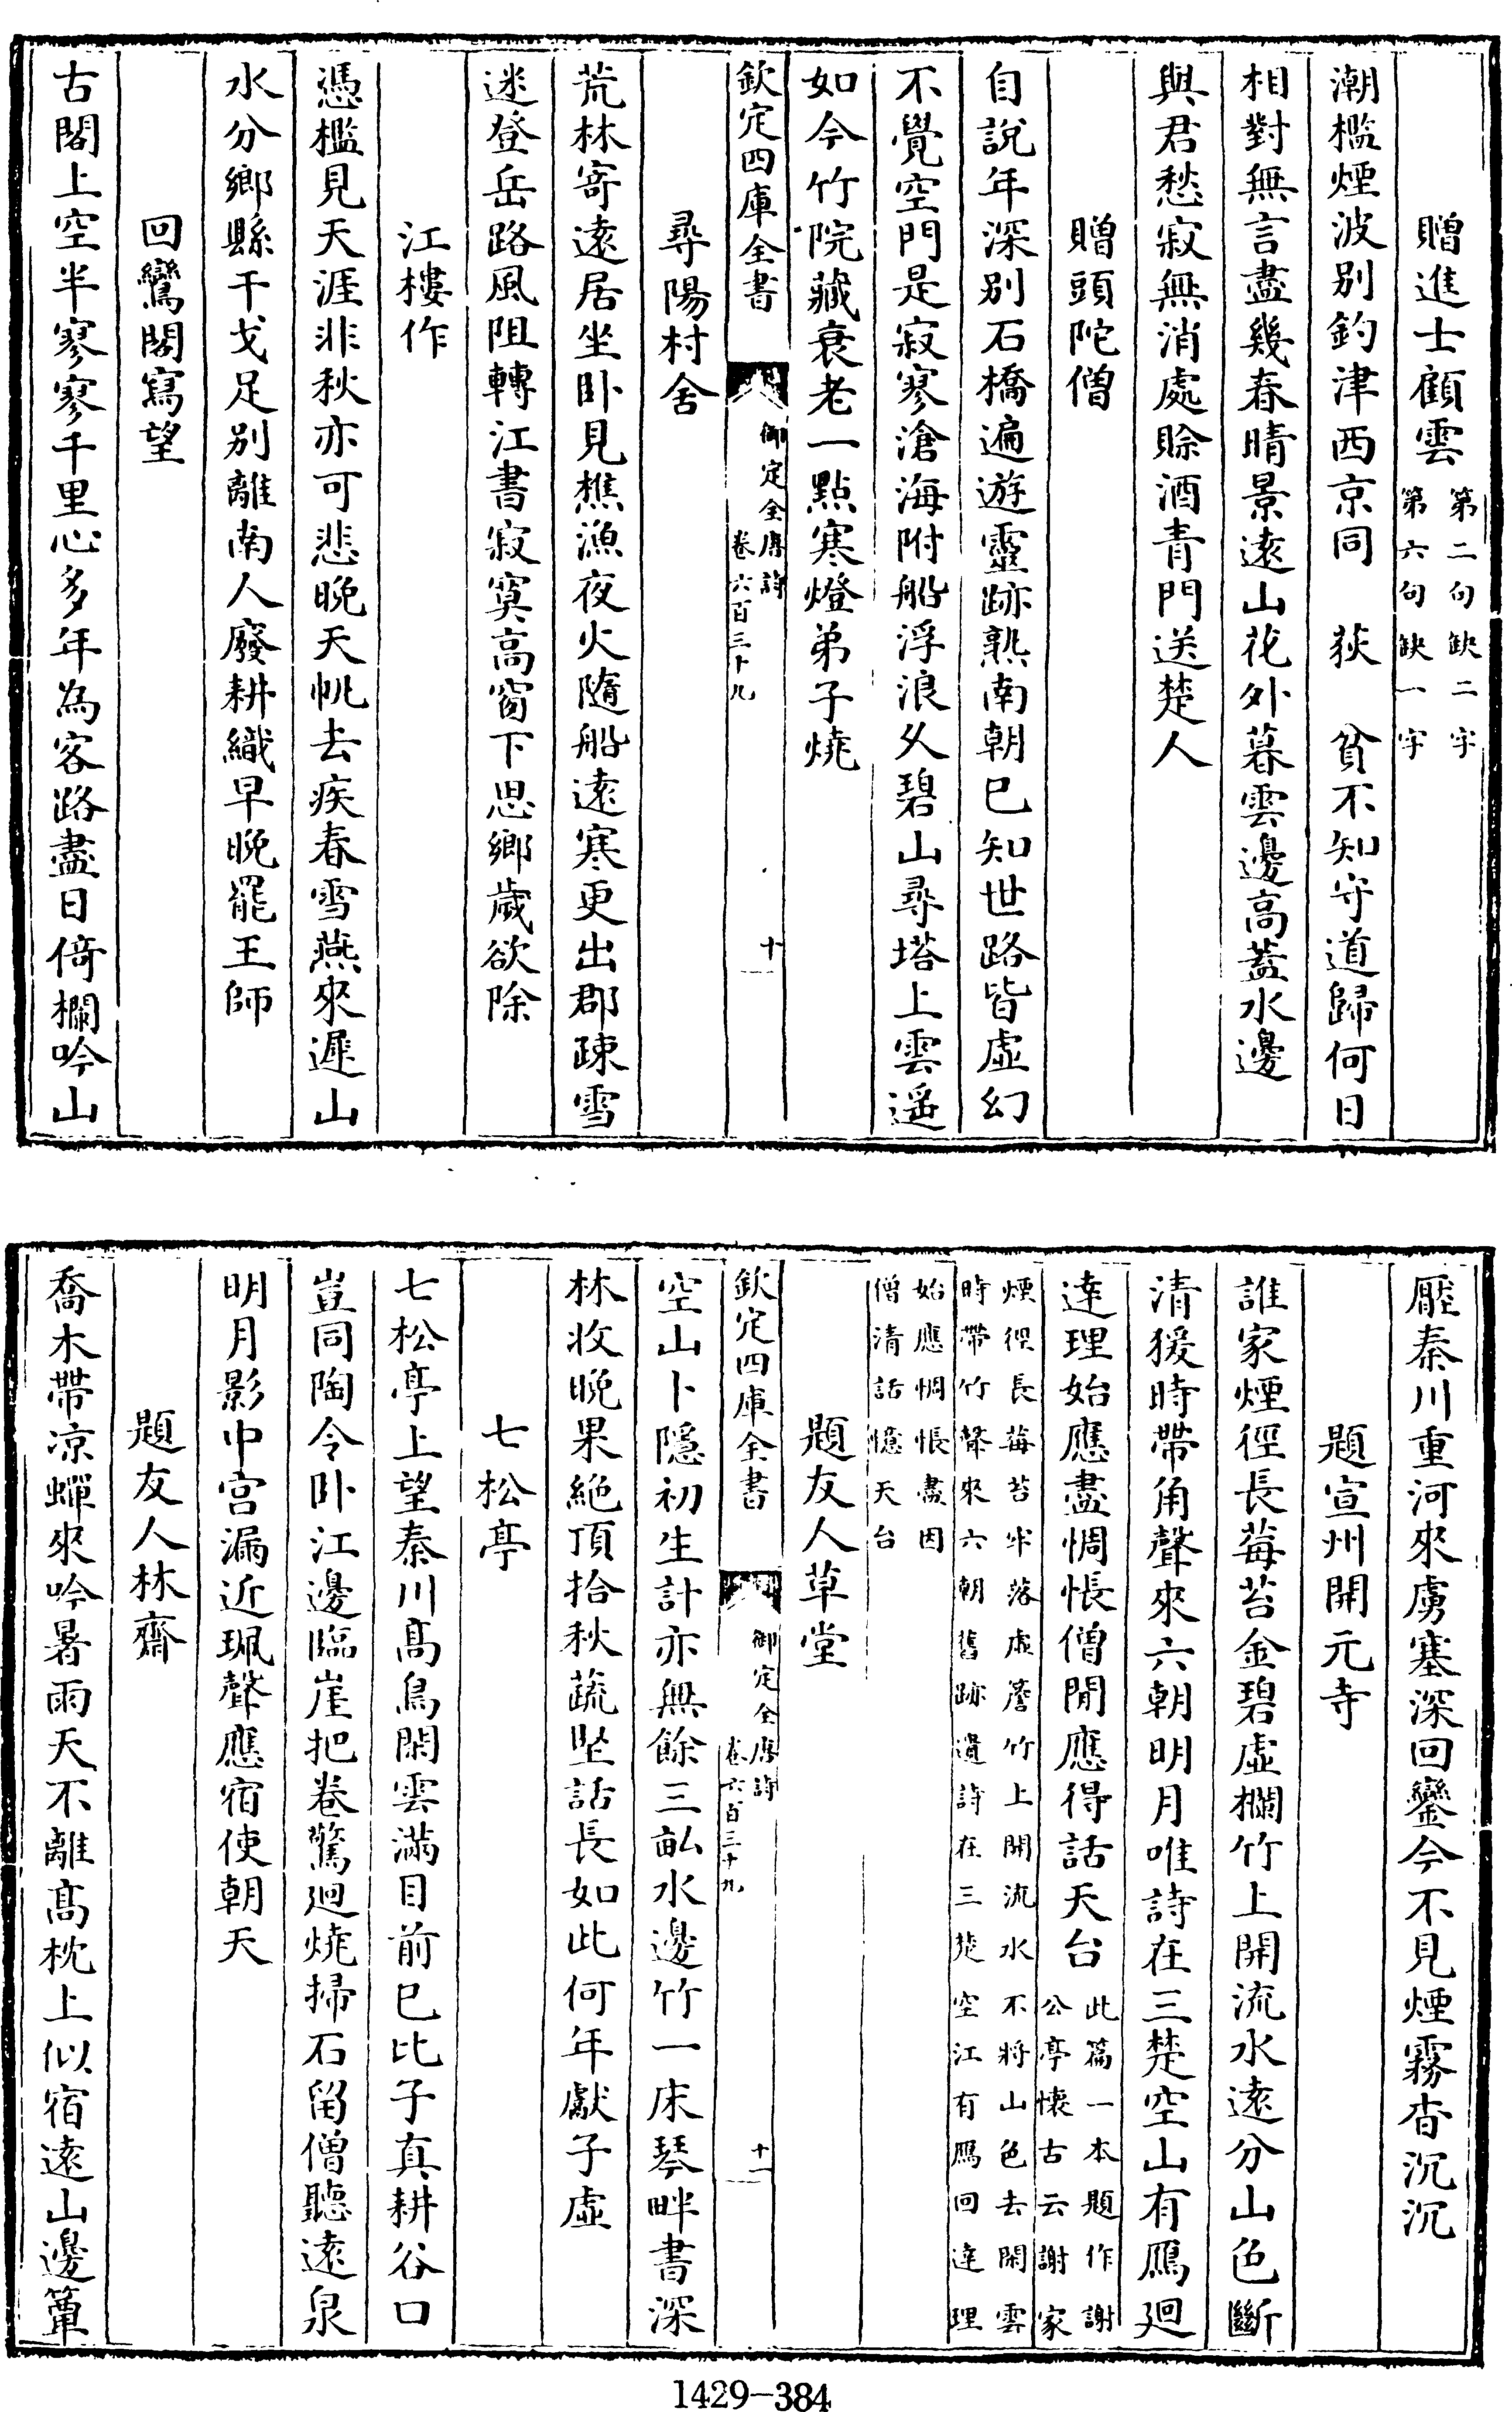 贈進士顧雲第二句缺二字第六句缺一字
潮檻煙波別釣津西京同 荻 貧不知守道歸何日
相對無言盡幾春晴景遠山花外暮雲邊高蓋水邊
與君愁寂無消處賒酒青門送楚人
贈頭陀僧
自說年深別石橋遍遊靈跡熟南朝已知世路皆虛幻
不覺空門是寂寥滄海附船浮浪久碧山尋塔上雲遥
如今竹院藏衰老一點寒燈弟子燒
欽定四庫全書 御定全唐詩 卷六百三十九 十
尋陽村舍
荒林寄遠居坐卧見樵漁夜火隨船遠寒更出郡疎雪
迷登岳路風阻轉江書寂寞高窗下思鄉歲欲除
江樓作
憑檻見天涯非秋亦可悲晚天帆去疾春雪燕來遲山
水分鄉縣干戈足别離南人廢耕織早晚罷王師
回鸞閣寫望
古閣上空半寥寥千里心多年為客路盡日倚欄吟山
壓秦川重河來虜塞深回鑾今不見煙霧杳沉沉
題宣州開元寺
誰家煙徑長莓苔金碧虛欄竹上開流水遠分山色斷
清猨時帶角聲來六朝明月唯詩在三楚空山有鴈廻
達理始應盡惆悵僧閒應得話天台此篇一本題作謝公亭懷古云謝家
煙徑長莓苔半落虛簷竹上開流水不將山色去閑雲
時帶竹聲來六朝舊跡遺詩在三楚空江有鴈回達理
始應惆悵盡因
僧清話憶天台
題友人草堂
欽定四庫全書 御定全唐詩 卷六百三十九 十一
空山卜隱初生計亦無餘三畝水邊竹一床琴畔書深
林收晚果絶頂拾秋蔬坐話長如此何年獻子虛
七松亭
七松亭上望秦川髙鳥閑雲滿目前已比子真耕谷口
豈同陶令卧江邊臨崖把卷驚廻燒掃石留僧聽遠泉
明月影中宫漏近珮聲應宿使朝天
題友人林齋
喬木帶凉蟬來吟暑雨天不離髙枕上似宿遠山邊簟
1429-384